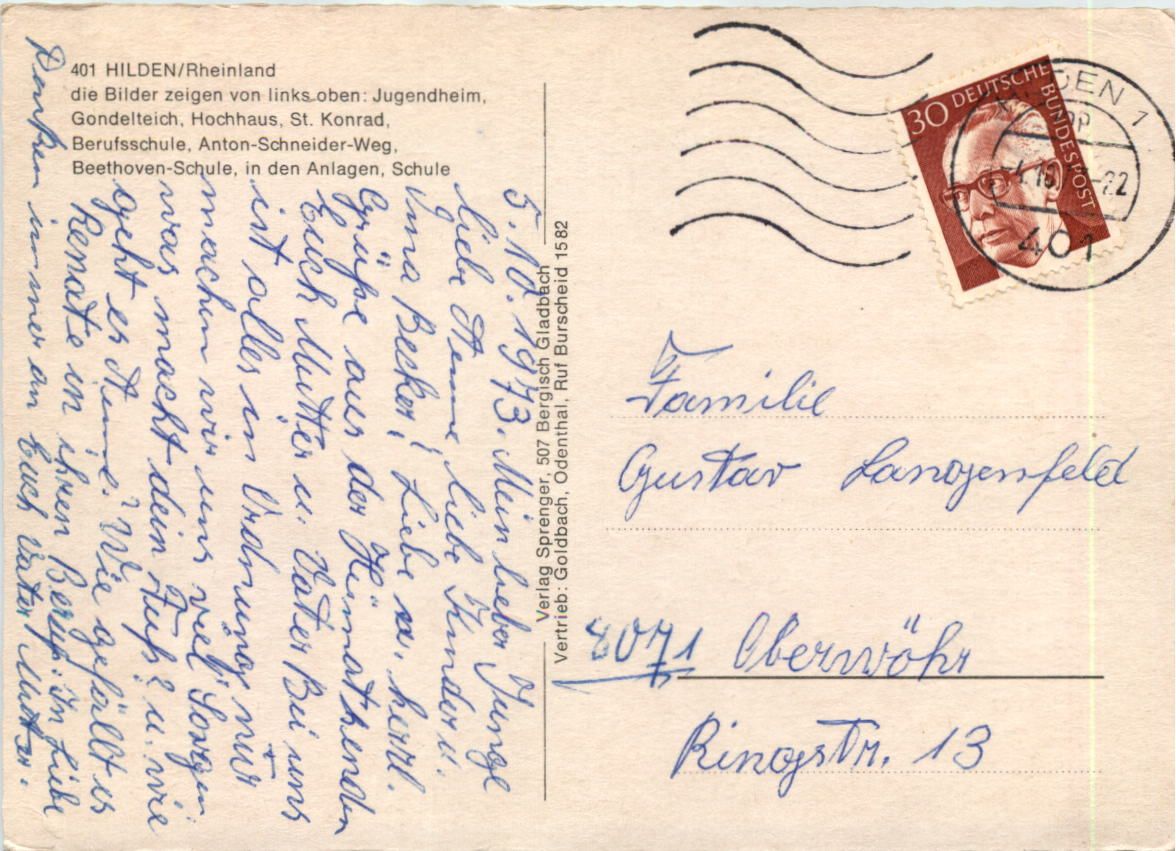 401 HILDEN/Rheinland
die Bilder zeigen von links oben: Jugendheim,
Gondelteich, Hochhaus, St. Konrad,
Berufsschule, Anton-Schneider-Weg,
Beethoven-Schule, in den Anlagen, Schule
5.10.1973. Mein lieber Junge
liebe Anne, liebe Kinder u.
Uma Becker! Liebe u. herzl.
Grüße aus der Heimat senden
Euch Mutter u. Vater Bei uns
ist alles in Ordnung nur
machen wir uns viel Sorgen
was macht dein Fuß? u. wie
geht es Anne? Wie gefällt es
Renate in ihren Beruf. In Liebe
Denken immer an Euch Vater Mutter.
Verlag Sprenger, 507 Bergisch Gladbach
Vertrieb: Goldbach, Odenthal, Ruf Burscheid 1582
30 DEUTSCHE BUNDESPOST
1
-22
401
Familie
Gustav Langenfeld
8071 Oberwöhr
Ringstr. 13